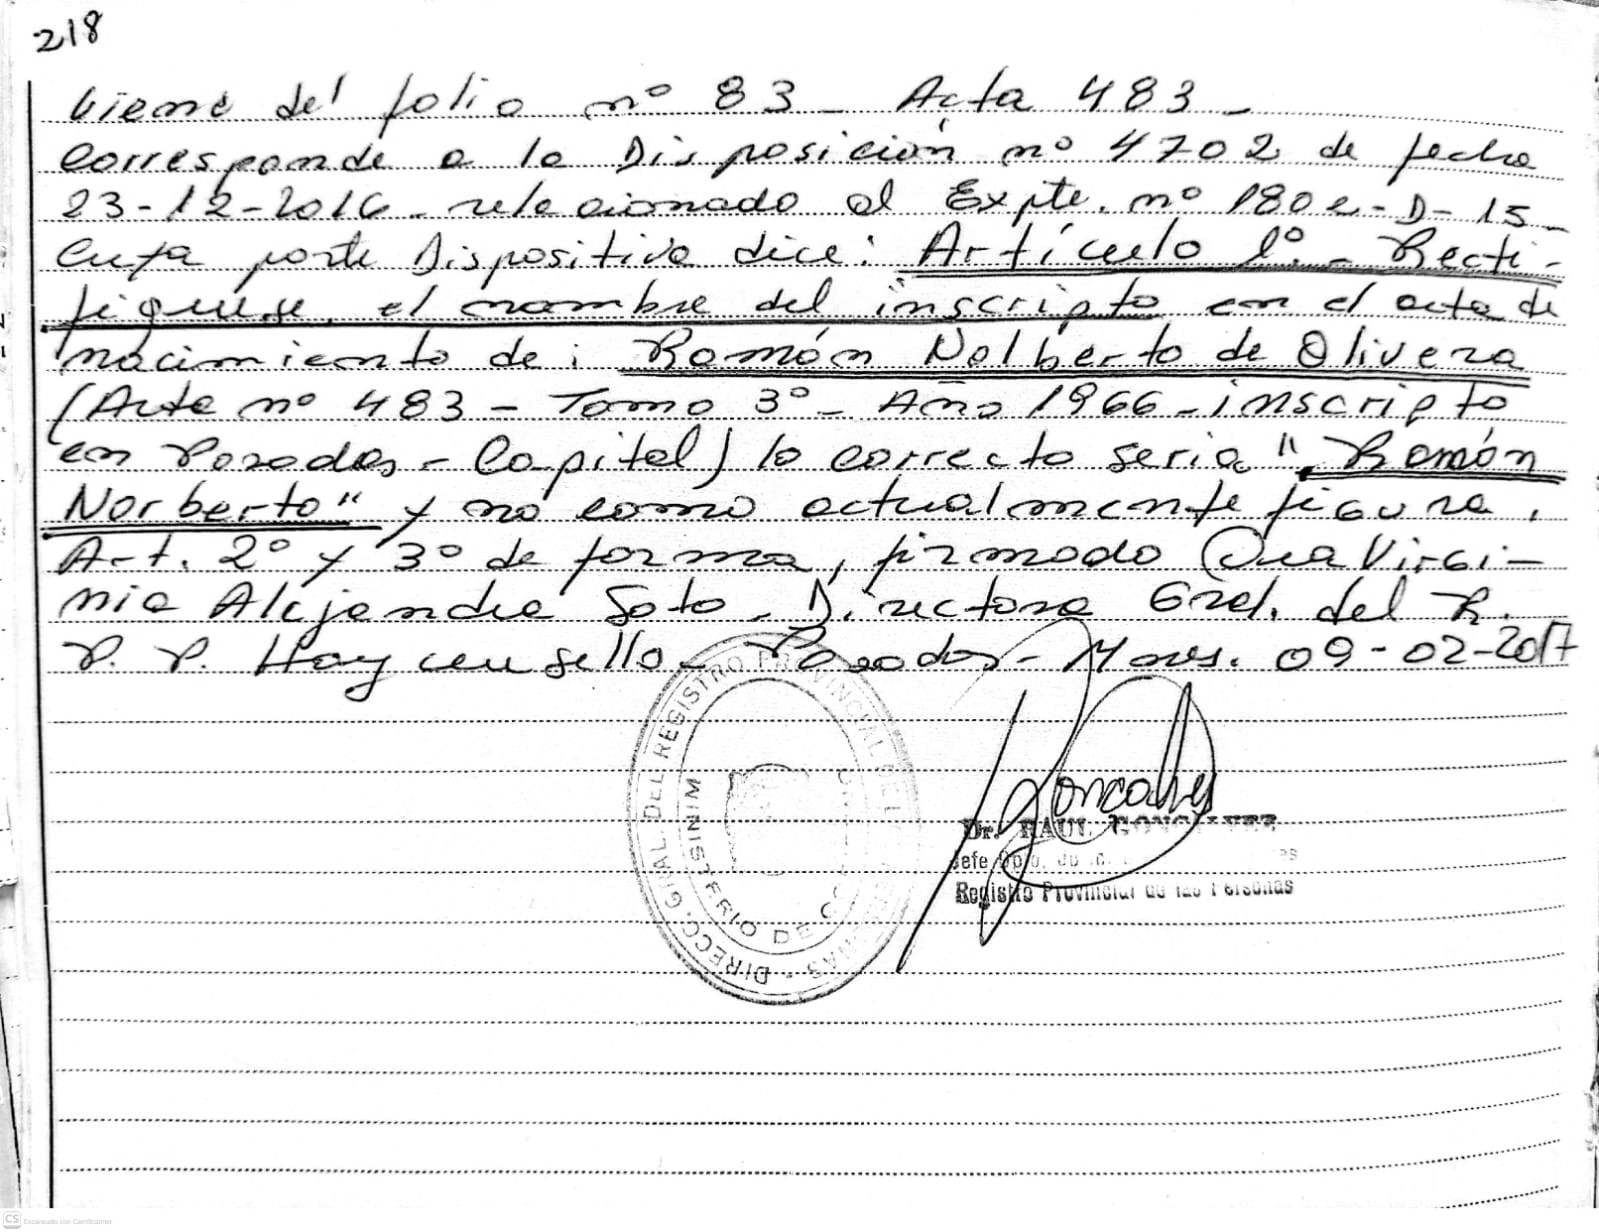 218
Viene del folio nº 83 - Acta 483 -
Corresponde a la Disposición nº 4702 de fecha
23-12-2016. relacionado al Expte. nº 1802-D-15
Cuya parte Dispositiva dice: Artículo 1º - Recti-
fiquese, el nombre del inscripto en el acta de
nacimiento de: Ramón Nolberto de Olivera
(Acta nº 483 - Tomo 3º - Año 1966 - inscripto
en Posadas - Capital) lo correcto seria "Ramón
Norberto" y no como actualmente figura.
Art. 2º y 3º de forma, firmado Dra Virgi-
nia Alejandra Soto - Directora Gral. del R.
P. P. Hay un sello - Posadas - Mnes. 09-02-2017
DIRECC. GRAL. DEL REGISTRO PROVINCIAL DE
MINISTERIO DE
Goncalvez
Dr. RAUL GONCALVEZ
Jefe Dpto.
Registro Provincial de las Personas
CS Escaneado con CamScanner